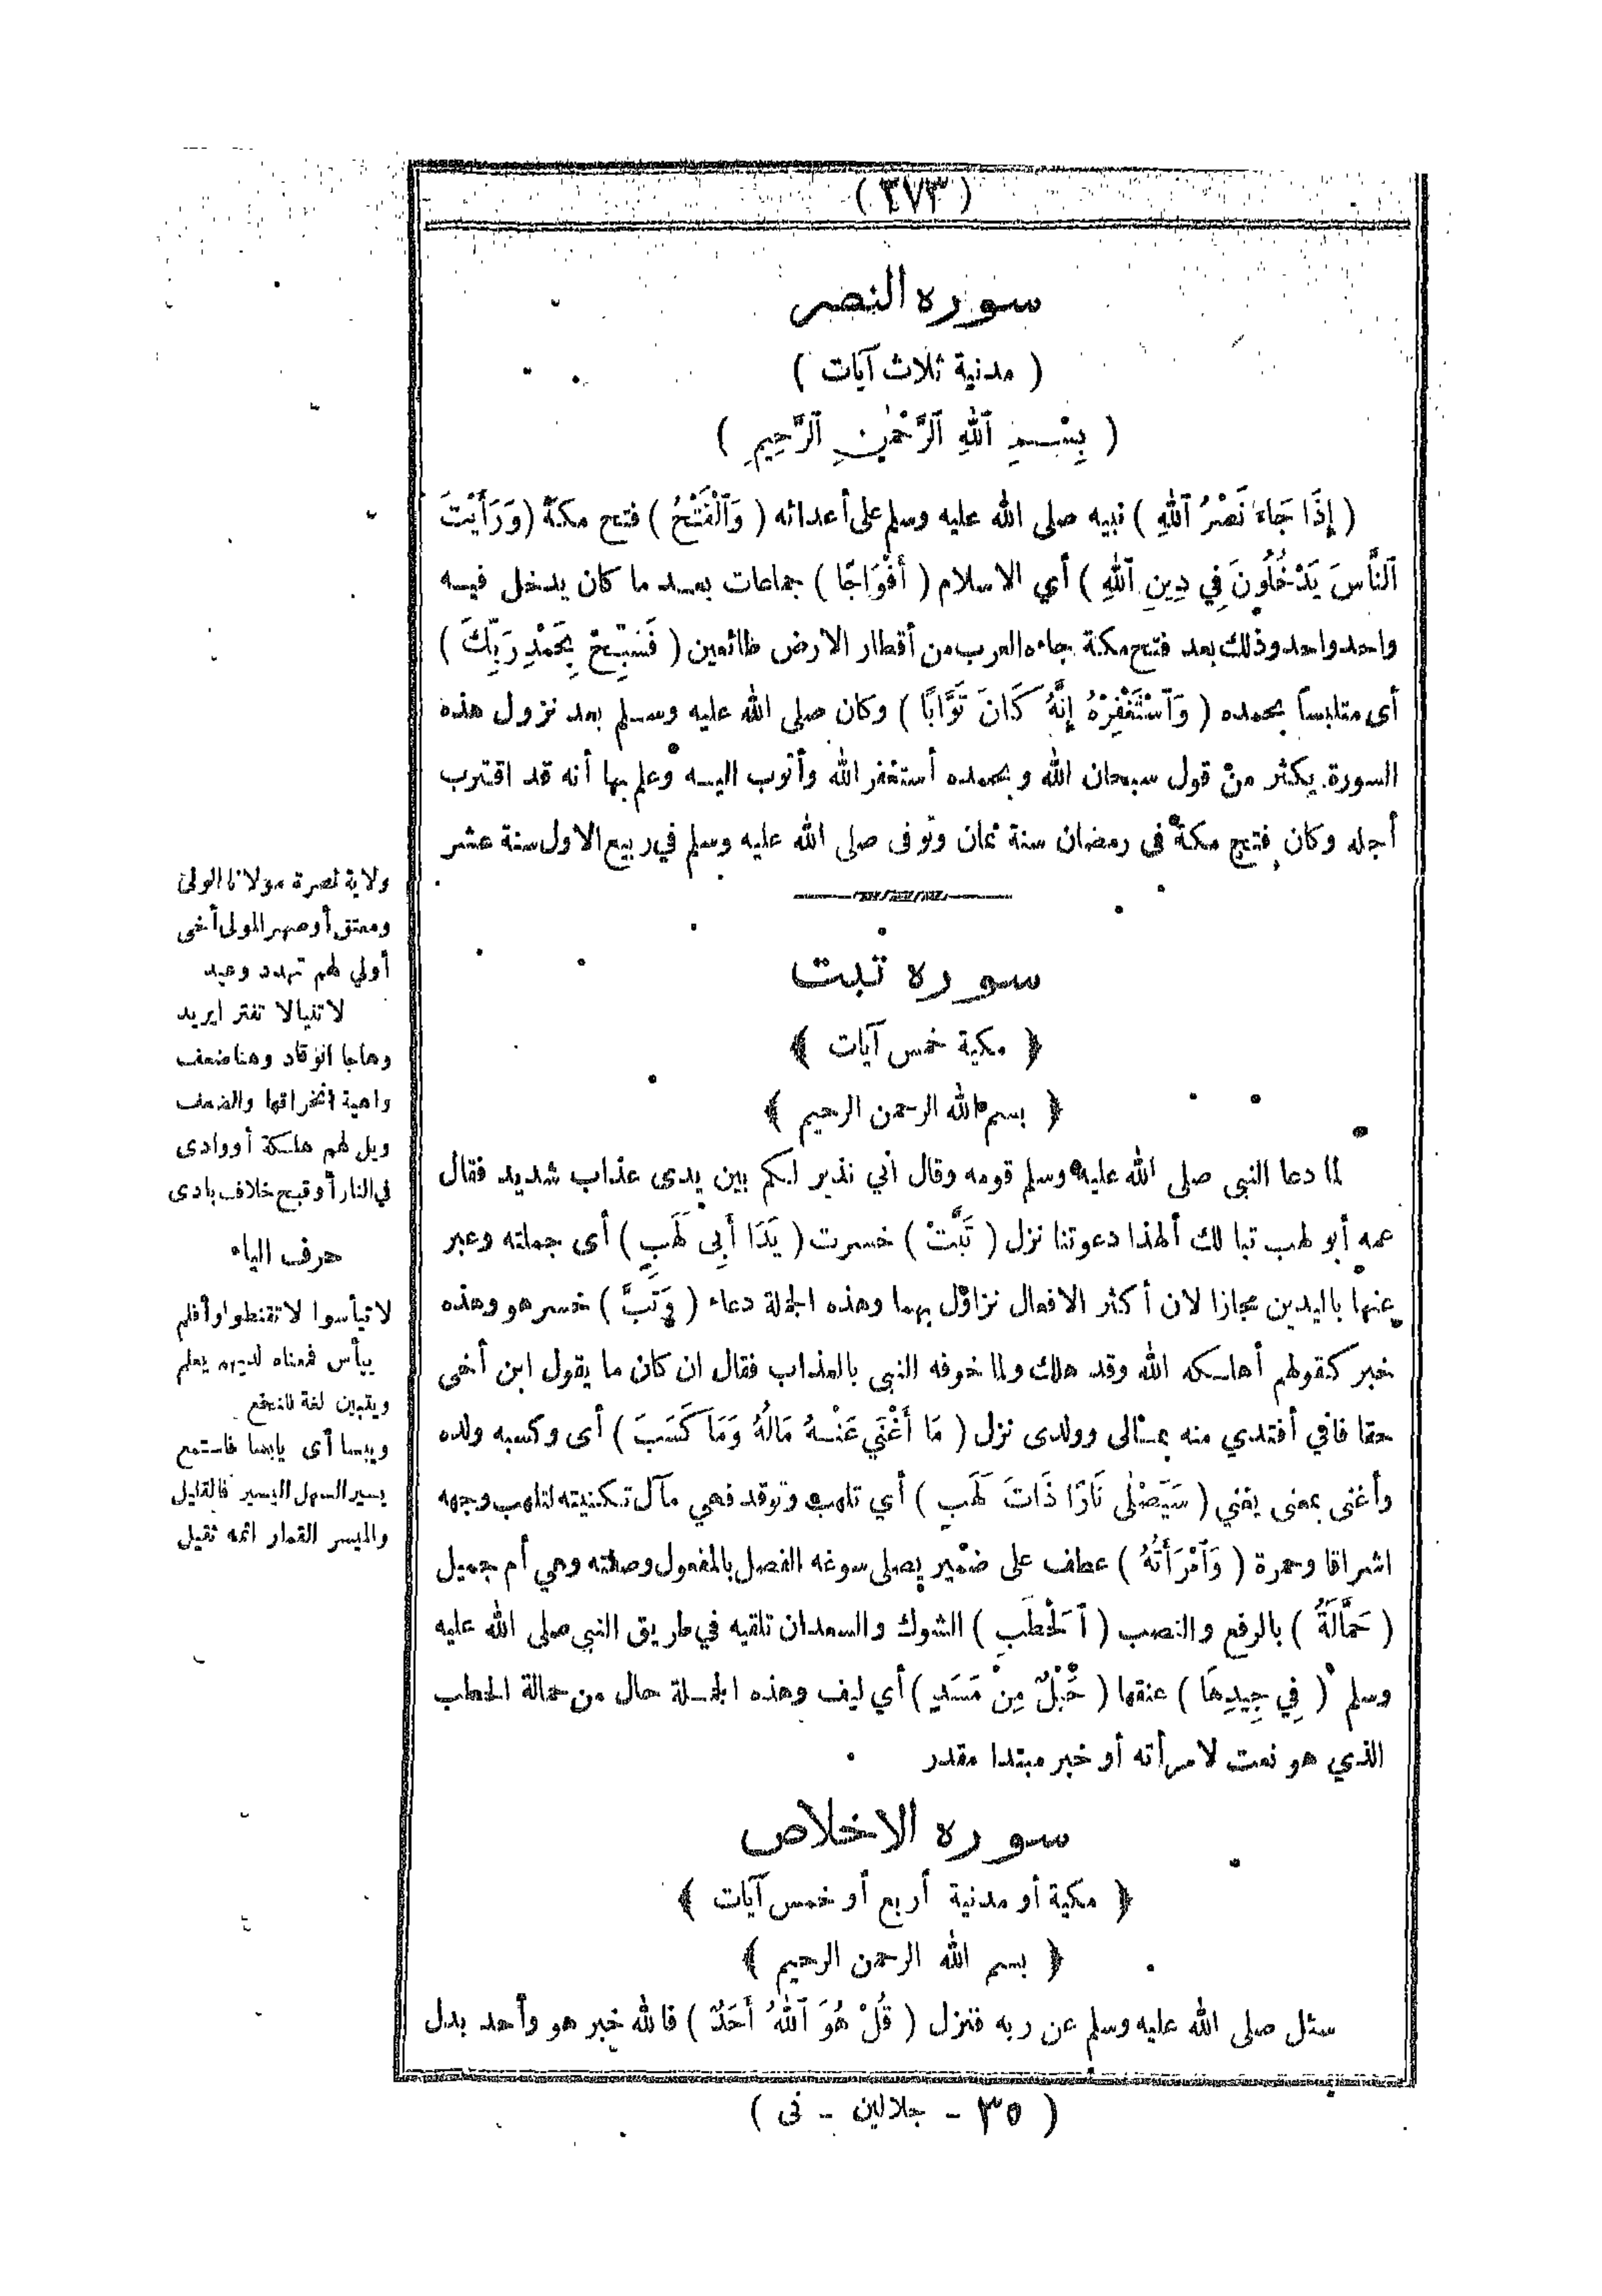 (٢٧٣)
سورة النصر
( مدنية ثلاث آيات )
( بِسْمِ ٱللهِ ٱلرَّحْمٰنِ ٱلرَّحِيمِ )
( إِذَا جَاءَ نَصْرُ ٱللهِ ) نبيه صلى الله عليه وسلم على أعدائه ( وَٱلْفَتْحُ ) فتح مكة ( وَرَأَيْتَ
ٱلنَّاسَ يَدْخُلُونَ فِي دِينِ ٱللهِ ) أي الاسلام ( أَفْوَاجًا ) جماعات بعد ما كان يدخل فيه
واحد واحد وذلك بعد فتح مكة جاءه العرب من أقطار الارض طائعين ( فَسَبِّحْ بِحَمْدِ رَبِّكَ )
أى متلبساً بحمده ( وَٱسْتَغْفِرْهُ إِنَّهُ كَانَ تَوَّابًا ) وكان صلى الله عليه وسلم بعد نزول هذه
السورة يكثر من قول سبحان الله وبحمده أستغفر الله وأتوب اليه وعلم بها أنه قد اقترب
أجله وكان فتح مكة فى رمضان سنة ثمان وتوفى صلى الله عليه وسلم في ربيع الاول سنة عشر
سورة تبت
﴿ مكية خمس آيات ﴾
﴿ بسم الله الرحمن الرحيم ﴾
لما دعا النبى صلى الله عليه وسلم قومه وقال أني نذير لكم بين يدى عذاب شديد فقال
عمه أبو لهب تبا لك ألهذا دعوتنا نزل ( تَبَّتْ ) خسرت ( يَدَا أَبِى لَهَبٍ ) أى جملته وعبر
عنها باليدين مجازا لان أكثر الافعال تزاول بهما وهذه الجملة دعاء ( وَتَبَّ ) خسر هو وهذه
خبر كقولهم أهلكه الله وقد هلك ولما خوفه النبى بالعذاب فقال ان كان ما يقول ابن أخى
حقا فاني أفتدي منه بمالى وولدى نزل ( مَا أَغْنَي عَنْهُ مَالُهُ وَمَا كَسَبَ ) أى وكسبه ولده
وأغنى بمعنى يغني ( سَيَصْلَى نَارًا ذَاتَ لَهَبٍ ) أي تلهب وتوقد فهي مآل تكنيته لتلهب وجهه
اشراقا وحمرة ( وَٱمْرَأَتُهُ ) عطف على ضمير يصلى سوغه الفصل بالمفعول وصفته وهي أم جميل
( حَمَّالَةُ ) بالرفع والنصب ( ٱلْحَطَبِ ) الشوك والسعدان تلقيه في طريق النبي صلى الله عليه
وسلم ( فِي جِيدِهَا ) عنقها ( حَبْلٌ مِنْ مَسَدٍ ) أي ليف وهذه الجملة حال من حمالة الحطب
الذي هو نعت لامرأته أو خبر مبتدا مقدر
سورة الاخلاص
﴿ مكية أو مدنية أربع أو خمس آيات ﴾
﴿ بسم الله الرحمن الرحيم ﴾
سئل صلى الله عليه وسلم عن ربه فنزل ( قُلْ هُوَ ٱللهُ أَحَدٌ ) فالله خبر هو وأحد بدل
( ٣٥ - جلالين - نى )
ولاية نصرة مولانا الولى
ومعتق أو صهر المولى أخى
أولي لهم تهدد وعيد
لاتنيا لا تفتر ايريد
وهاجا الوقاد وهنا ضعف
واهية انخراقها والضعف
ويل لهم هلكة أو وادى
في النار أو قبح خلاف بادى
حرف الياء
لا تيأسوا لا تقنطوا وأفلم
ييأس فمعناه لديهم يعلم
ويتبين لغة للنخع
ويبسا أى يابسا فاستمع
يسير السهل اليسير فالقليل
والميسر القمار اثمه ثقيل